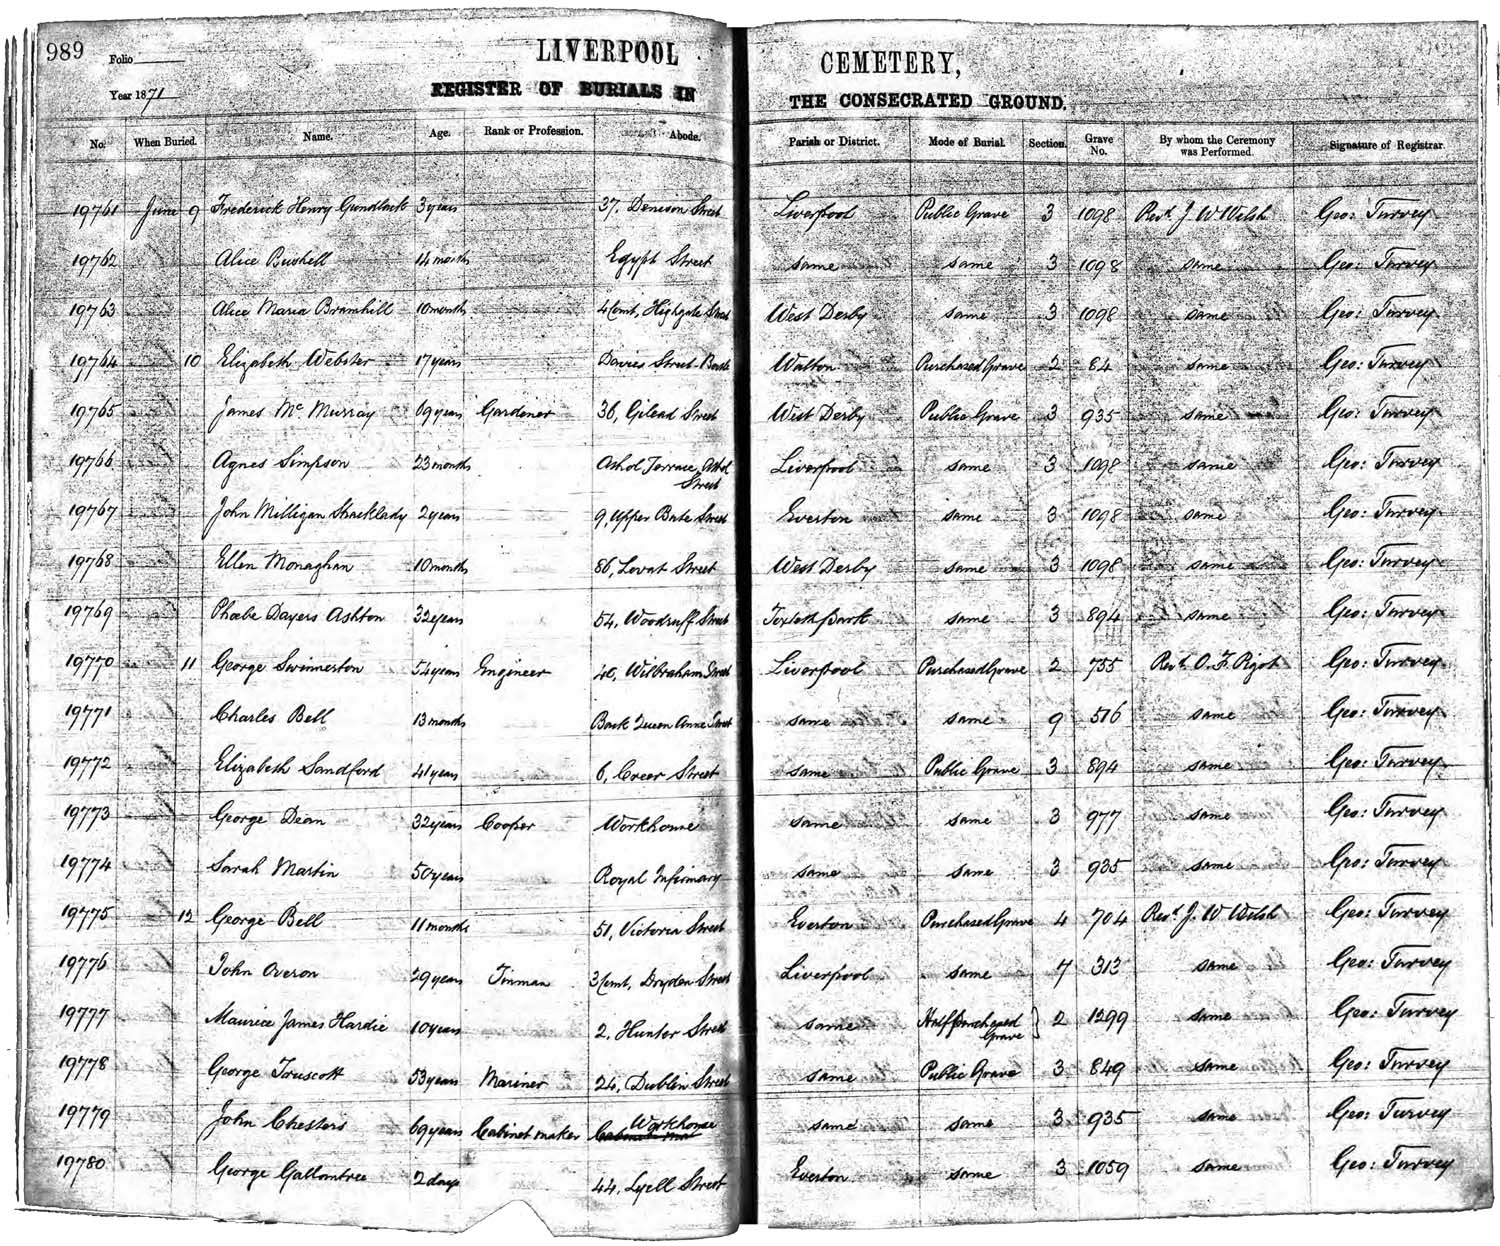 989 Folio LIVERPOOL CEMETERY,
Year 1871 REGISTER OF BURIALS IN THE CONSECRATED GROUND.
No. When Buried. Name. Age. Rank or Profession. Abode. Parish or District. Mode of Burial. Section. Grave No. By whom the Ceremony was Performed. Signature of Registrar.
19761 June 9 Frederick Henry Gundlack 3 years 37, Denison Street Liverpool Public Grave 3 1098 Revd. J. W Welsh Geo: Turvey
19762 Alice Bushell 14 months Egypt Street same same 3 1098 same Geo: Turvey
19763 Alice Maria Bramhill 10 months 4 Court, Highgate Street West Derby same 3 1098 same Geo: Turvey
19764 10 Elizabeth Webster 17 years Davies Street Bootle Walton Purchased Grave 2 84 same Geo: Turvey
19765 James Mc Murray 69 years Gardener 36, Gilead Street West Derby Public Grave 3 935 same Geo: Turvey
19766 Agnes Simpson 23 months Athol Terrace, Athol Street Liverpool same 3 1098 same Geo: Turvey
19767 John Milligan Stracklady 2 years 9, Upper Bute Street Everton same 3 1098 same Geo: Turvey
19768 Ellen Monaghan 10 months 86, Lovat Street West Derby same 3 1098 same Geo: Turvey
19769 Phoebe Dayers Ashton 32 years 54, Woodruff Street Toxteth park same 3 894 same Geo: Turvey
19770 11 George Swinnerton 54 years Engineer 40, Wilbraham Street Liverpool Purchased Grave 2 755 Revd. O. F. Pigot Geo: Turvey
19771 Charles Bell 13 months Back Queen Anne Street same same 9 516 same Geo: Turvey
19772 Elizabeth Sandford 41 years 6, Greer Street same Public Grave 3 894 same Geo: Turvey
19773 George Dean 32 years Cooper Workhouse same same 3 977 same Geo: Turvey
19774 Sarah Martin 50 years Royal Infirmary same same 3 935 same Geo: Turvey
19775 12 George Bell 11 months 51, Victoria Street Everton Purchased Grave 4 704 Revd. J. W Welsh Geo: Turvey
19776 John Overon 29 years Tinman 3 Court, Dryden Street Liverpool same 7 313 same Geo: Turvey
19777 Maurice James Hardie 10 years 2, Hunter Street same Half purchased Grave } 2 1299 same Geo: Turvey
19778 George Truscott 53 years Mariner 24, Dublin Street same Public Grave 3 849 same Geo: Turvey
19779 John Chesters 69 years Cabinet maker Workhouse same same 3 935 same Geo: Turvey
19780 George Gallantree 2 days 44, Lyell Street Everton same 3 1059 same Geo: Turvey